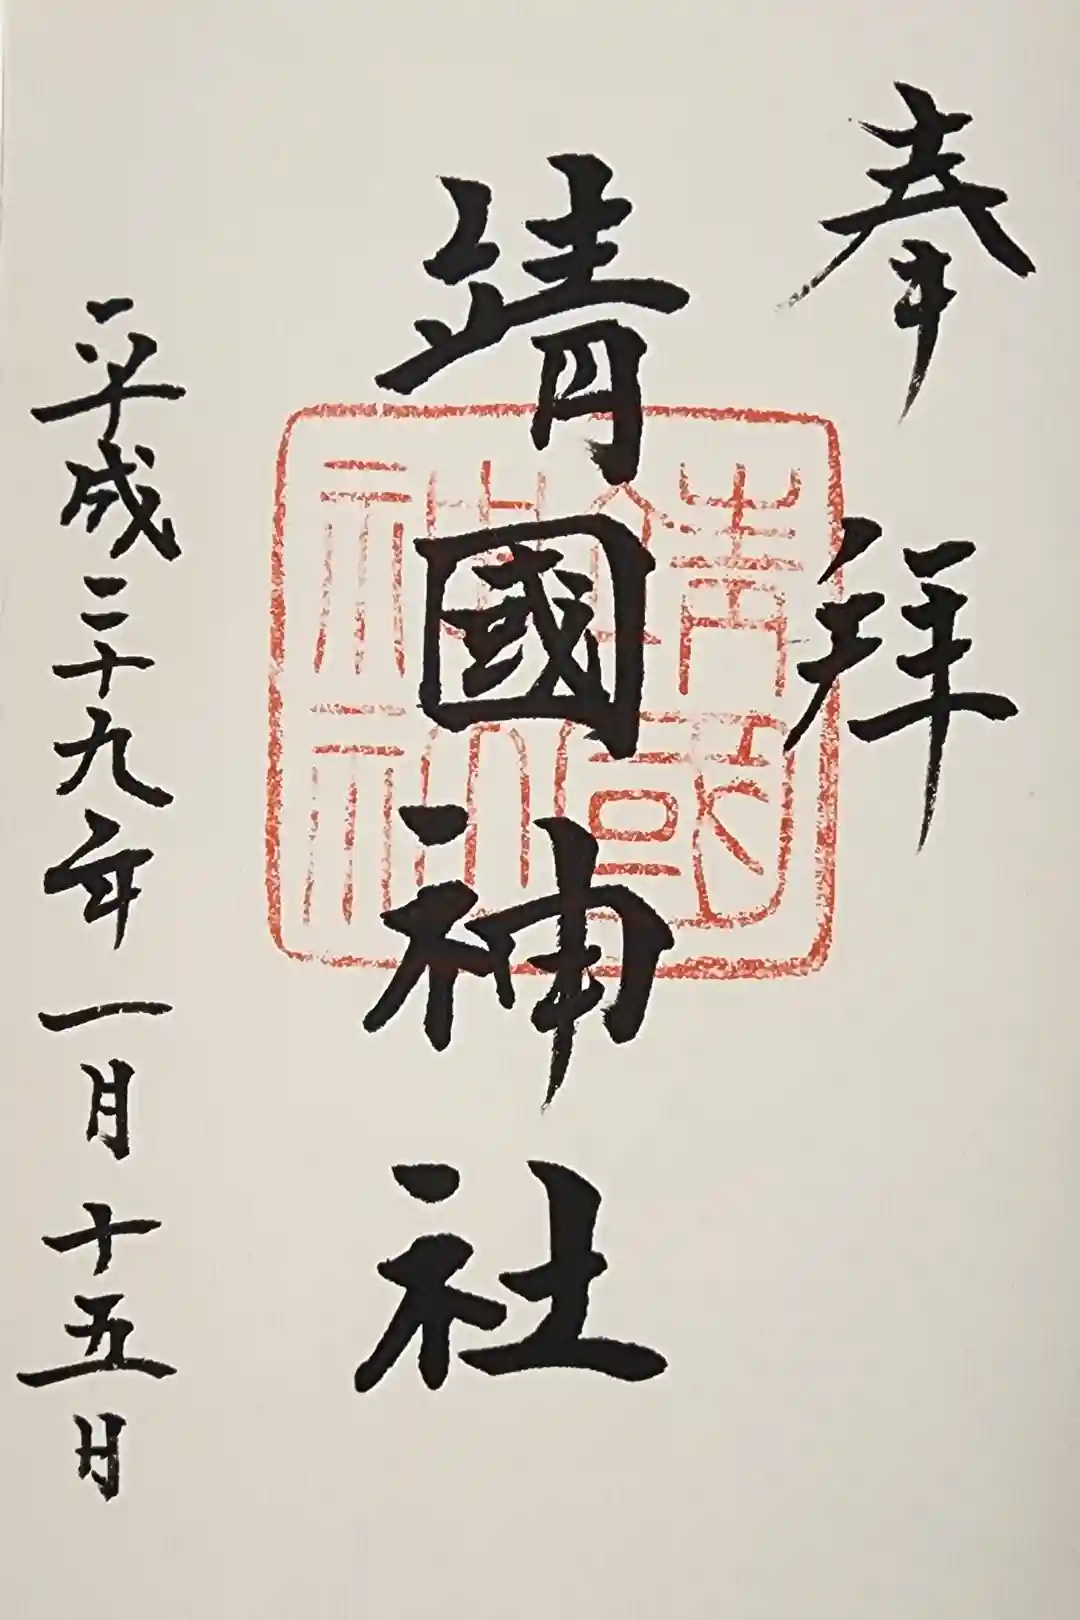 奉拝
靖國神社
平成二十九年一月十五日
靖國
神社